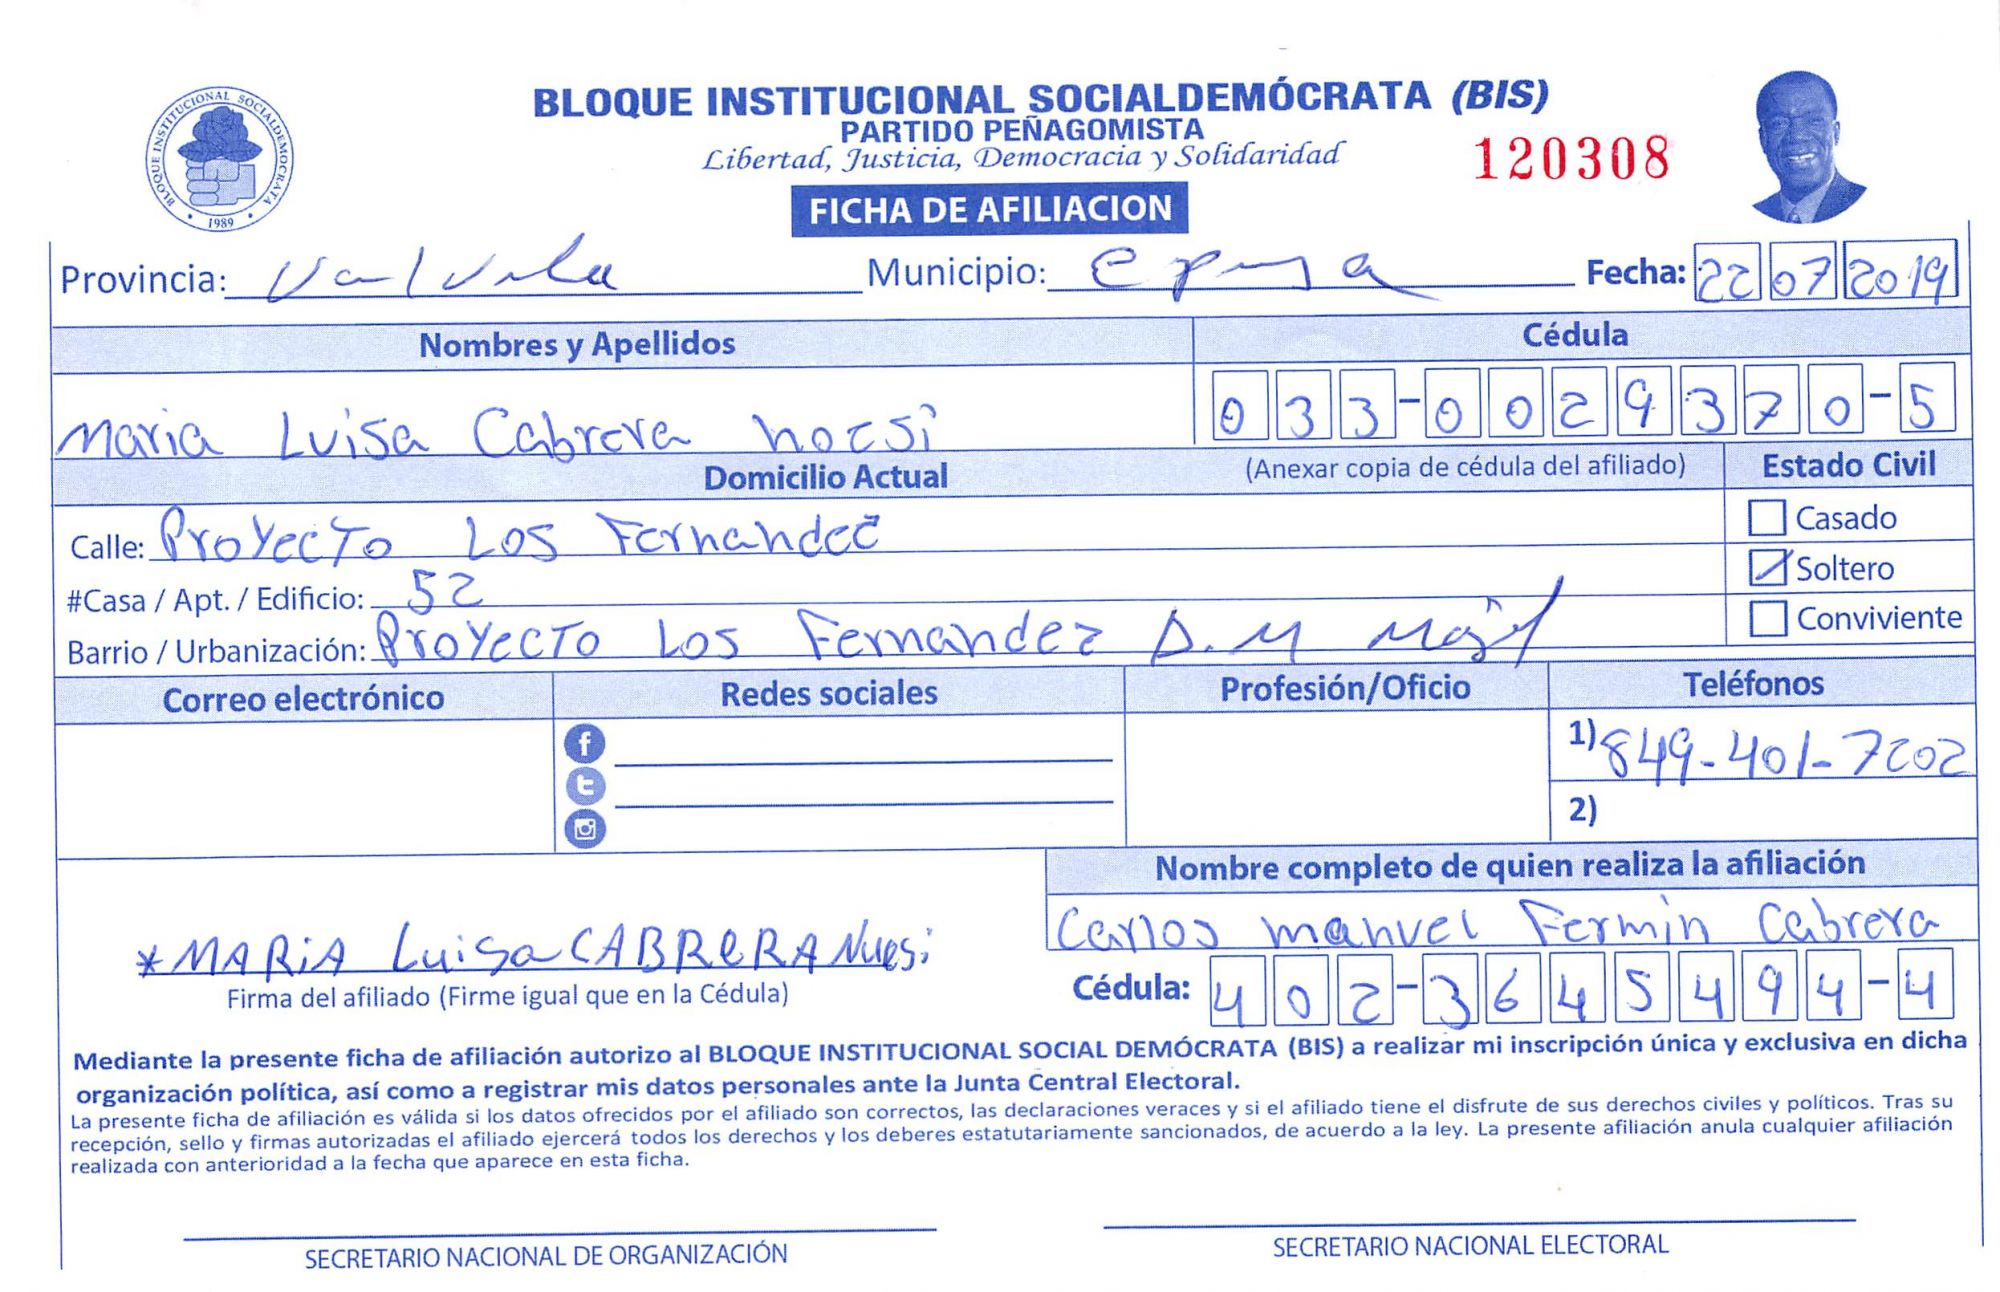 BLOQUE INSTITUCIONAL SOCIALDEMÓCRATA (BIS)
PARTIDO PEÑAGOMISTA
Libertad, Justicia, Democracia y Solidaridad
120308
BLOQUE INSTITUCIONAL SOCIALDEMOCRATA
• 1989 •
FICHA DE AFILIACION
Provincia: Valverde Municipio: Fecha: 22 07 2019
Nombres y Apellidos Cédula
Maria Luisa Cabrera 033-0029370-5
Domicilio Actual (Anexar copia de cédula del afiliado) Estado Civil
Calle: Proyecto Los Fernandez Casado
#Casa / Apt. / Edificio: 52 Soltero
Barrio / Urbanización: Proyecto Los Fernandez D.M Conviviente
Correo electrónico Redes sociales Profesión/Oficio Teléfonos
1) 849-401-7202
2)
Nombre completo de quien realiza la afiliación
Carlos manuel Fermin Cabrera
*MARiA LuiSa CABReRA Nuesi
Firma del afiliado (Firme igual que en la Cédula) Cédula: 402-3645494-4
Mediante la presente ficha de afiliación autorizo al BLOQUE INSTITUCIONAL SOCIAL DEMÓCRATA (BIS) a realizar mi inscripción única y exclusiva en dicha
organización política, así como a registrar mis datos personales ante la Junta Central Electoral.
La presente ficha de afiliación es válida si los datos ofrecidos por el afiliado son correctos, las declaraciones veraces y si el afiliado tiene el disfrute de sus derechos civiles y políticos. Tras su
recepción, sello y firmas autorizadas el afiliado ejercerá todos los derechos y los deberes estatutariamente sancionados, de acuerdo a la ley. La presente afiliación anula cualquier afiliación
realizada con anterioridad a la fecha que aparece en esta ficha.
SECRETARIO NACIONAL DE ORGANIZACIÓN SECRETARIO NACIONAL ELECTORAL